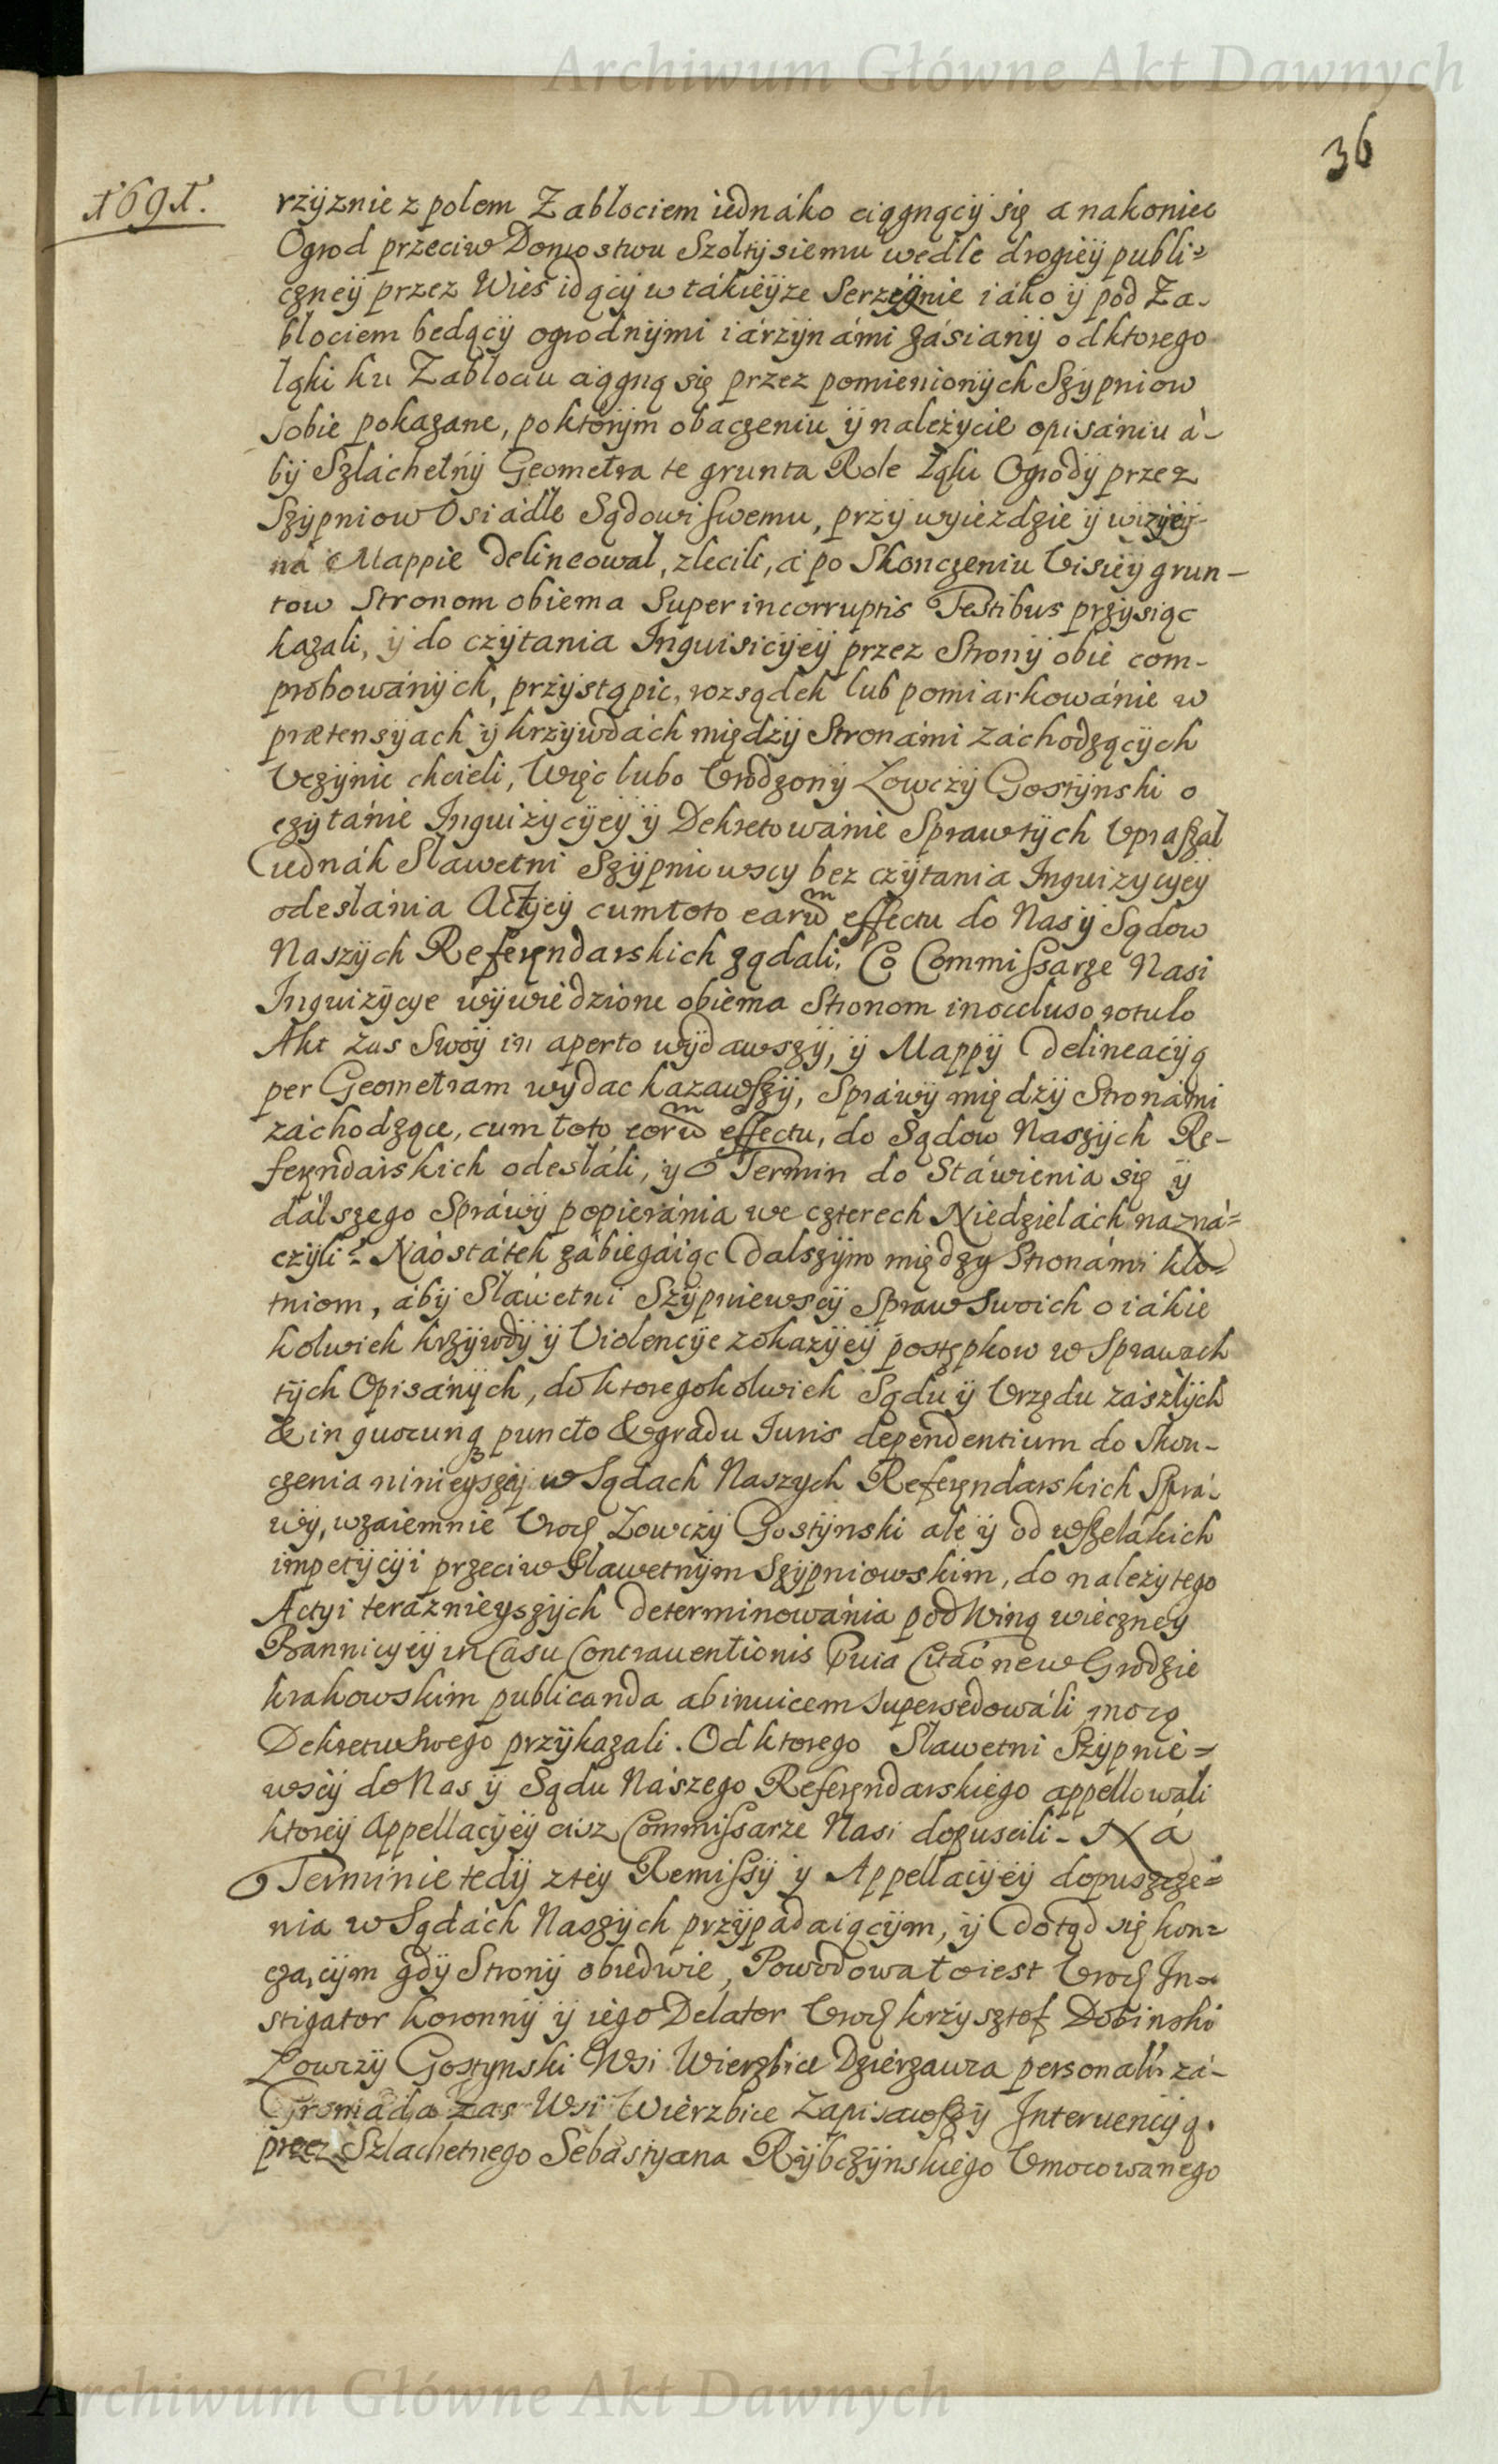 Archiwum Główne Akt Dawnych
36
1691.
rzyznie z polem Zabłociem iednáko ciągnący się a nakoniec
Ogrod przeciw Domostwu Szołtysiemu wedle drogiey publi=
czney przez Wieś idącÿ w tákieÿze Serzÿznie iáko ÿ pod Za-
błociem bedącÿ ogrodnÿmi iárzÿnámi zásianÿ od ktorego
łąki ku Zabłociu ciągną się przez pomienionÿch Szypniow
sobie pokazane, po ktorÿm obaczeniu ÿ należycie opisániu á-
bÿ Szláchetnÿ Geometra te grunta Role Łąki Ogrodÿ przez
Szypniow Osiádłe Sądowi swemu, przÿ wyiezdzie ÿ wizÿeÿ
ná Mappie delineował, zlecili, á po Skonczeniu Visieÿ grun-
tow Stronom obiema Super incorruptis Testibus przysiąc
kazali, ÿ do czÿtania Inquisicÿeÿ przez Stronÿ obie com-
probowánÿch, przÿstąpic, rozsądek lub pomiarkowánie w
prætensÿach ÿ krzÿwdách międzÿ Stronámi záchodzącÿch
Vczÿnic chcieli, Więc lubo Vrodzonÿ Łowczÿ Gostÿnski o
czytánie Inquizÿcÿeÿ ÿ Dekretowánie Spraw tÿch Vpraszał
iednák Sławetni Szÿpniowscy bez czÿtania Inquizycyeÿ
odesłánia Actyeÿ cum toto earũ effectu do Nas ÿ Sądow
Naszÿch Referęndarskich ząndali, Co Commissarze Nasi
Inquizÿcye wÿwiedzione obiema Stronom in occluso rotulo
Akt zas Swoÿ in aperto wÿdawszÿ, ÿ Mappÿ delineacÿą
per Geometram wÿdac kazawszÿ, Spráwÿ międzÿ Stronámi
záchodzące, cum toto eorũ effectu, do Sądow Naszÿch Re-
feręndarskich odesłáli, ÿ Termin do Stáwienia się ÿ
dálszego Spráwÿ popieránia we czterech Niedzielách názná=
czÿli. Náostátek zábiegáiąc dalszÿm między Stronámi kło=
tniom, ábÿ Sławetni Szÿpniewscÿ Spraw swoich o iákie
kolwiek krzÿwdÿ ÿ Violencÿe z okazÿeÿ postępkow w Sprawách
tÿch Opisánÿch, do ktoregokolwiek Sądu ÿ Vrzędu zászłÿch
& in quocunq puncto & gradu Iuris dependentium do skon-
czenia ninieyszeÿ w Sądach Naszych Referęndarskich Sprá-
wy, wzaiemnie Vrod Łowczÿ Gostÿnski ale ÿ od wszelákich
impetÿcÿi przeciw Sławetnÿm Szÿpniowskim, do należytego
Actyi teráznieyszÿch determinowánia pod Winą wieczneÿ
Bannicyeÿ in Casu Contrauentionis Pvia Citaõne w Grodzie
krakowskim publicanda ab inuicem supersedowáli mocą
Dekretu swego przÿkazali. Od ktorego Sławetni Szÿpnie=
wscÿ do Nas ÿ Sądu Nászego Referęndarskiego appellowali
ktoreÿ Appellacÿeÿ ciisz Commissarze Nasi dopuscili. Ná
Terminie tedÿ z teÿ Remissÿ ÿ Appellacÿeÿ dopuszcze=
nia w Sądách Naszÿch przÿpádaiącÿm, ÿ dotąd się kon=
cza,cÿm gdÿ Stronÿ obiedwie, Powodowa toiest Vrod In=
stigator koronnÿ ÿ iego Delator Vrod krzÿsztof Dobinski
Łowczÿ Gostynski Wsi Wierzbice Dzierzawca personalr zá-
Gromáda zas Wsi Wierzbice Zapisawszÿ Interuencÿą.
przez Szlachetnego Sebástÿana Rÿbczÿnskiego Vmocowanego
Archiwum Główne Akt Dawnych